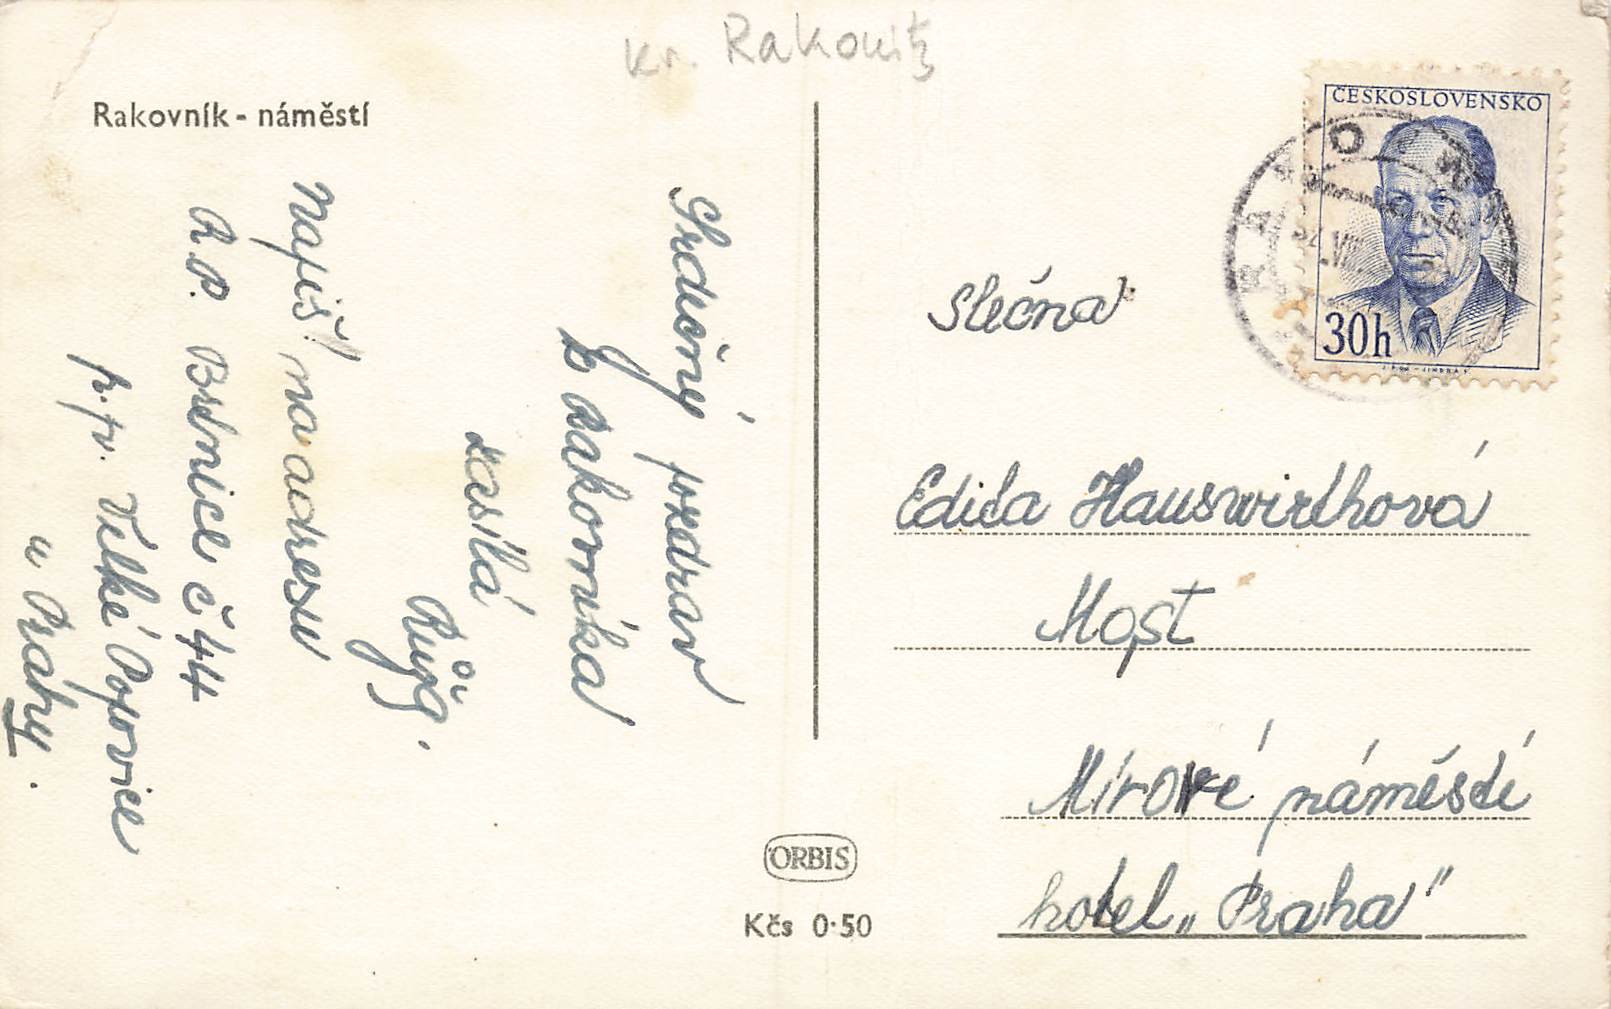 kr. Rakonitz
Rakovník - náměstí
Srdečný pozdrav
z Rakovníka
zasílá
Růg.
Napiš! na adresu
R.P. Brtnice č 44
p. fv. Velké Popovice
u Prahy.
ČESKOSLOVENSKO
30h
Slečna
Edita Hauswirthová
Most
Mírové náměstí
hotel „Praha"
ORBIS
Kčs 0·50